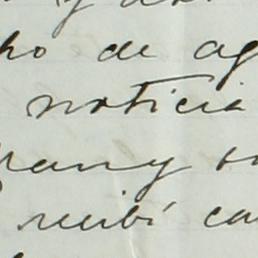 ho de ag
noticia
pany
recibí ca